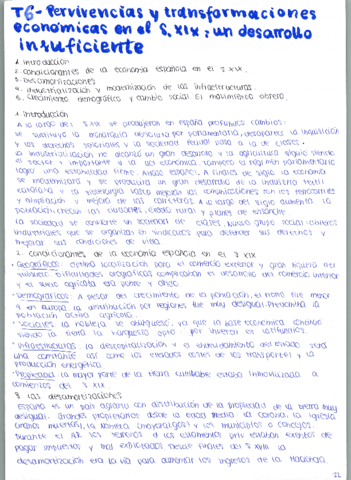 T6- Pervivencias y transformaciones
económicas en el s. XIX: un desarrollo
insuficiente
1. Introducción
2. condicionantes de la economía española en el s. XIX
3. Desamortizaciones
4. Industrialización y modernización de las infraestructuras
5. Crecimiento demográfico y cambio social. El movimiento obrero.
1. Introducción
A lo largo del s. XIX se produjeron en España profundos cambios:
se sustituye la monarquía absoluta por parlamentaria, desaparece la inquisición
y los derechos señoriales y la sociedad feudal pasa a la de clases.
la industrialización no alcanzó un gran desarrollo y la agricultura siguió siendo
el sector + importante a la act económica. tampoco el régimen parlamentario
logró una estabilidad firme. A finales de siglo la economía
se modernizará y se producirá un gran desarrollo de la industria textil
catalana y la siderurgia vasca. mejora las comunicaciones con el ferrocarril
y ampliación y mejora de las carreteras. A lo largo del siglo aumentó la
población, crecen las ciudades, éxodo rural y planes de ensanche.
la sociedad se convierte en sociedad de clases. Nuevo grupo social: obreros
industriales que se organizan en sindicatos para defender sus derechos y
mejorar sus condiciones de vida.
2. condicionantes de la economía española en el s XIX
-Geográficos: óptima localización para el comercio exterior y gran riqueza del
subsuelo. Dificultades orográficas complicaban el desarrollo del comercio interior
y el suelo agrícola era pobre y árido.
-Demográficos: A pesar del crecimiento de la población, el ritmo fue menor
q en europa. la distribución por regiones fue muy desigual. Presentaba la
población activa agrícola.
-Sociales: la nobleza se aburguesó, ya que la base económica continúa
siendo la tierra. la burguesía optó por invertir en latifundios.
-Infraestructuras: la descapitalización y el endeudamiento del estado será
una constante así como los elevados costes de los transportes y la
producción energética.
-Propiedad: la mayor parte de la tierra cultivable estaba inmovilizada a
comienzos del s XIX
3. las desamortizaciones
España es un país agrario con distribución de la propiedad de la tierra muy
desigual. Grandes propietarios desde la edad media: la corona, la iglesia
(manos muertas), la nobleza (mayorazgos) y los municipios o concejos.
durante el AR los terrenos d los estamentos privilegiados exentos de
pagar impuestos y mal explotados. Desde finales del s XVIII la
desamortización era la vía para aumentar los ingresos de la Hacienda